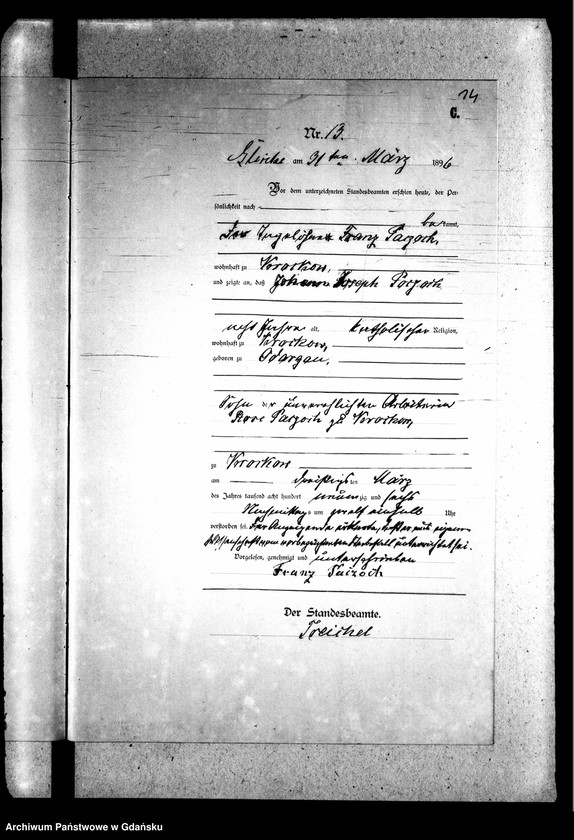 14
C.
Nr. 13.
am 31ten März 1896
Vor dem unterzeichneten Standesbeamten erschien heute, der Per-
sönlichkeit nach
bekannt,
Franz Paczoch,
wohnhaft zu Krockow,
und zeigte an, daß Joseph Paczoch
acht Jahre alt, katholischer Religion,
wohnhaft zu Krockow,
geboren zu Odargau,
Sohn der unverehlichten Arbeiterin
Paczoch zu Krockow,
zu Krockow
am dreißigsten März
des Jahres tausend acht hundert neunzig und sechs
Nachmittags um zwölf einhalb Uhr
verstorben sei. Der Anzeigende erklärte, daß er aus eigener
Wissenschaft von vorbezeichneten Sterbefall unterrichtet sei.
Vorgelesen, genehmigt und unterschrieben
Franz Paczoch
Der Standesbeamte.
Treichel
Archiwum Państwowe w Gdańsku